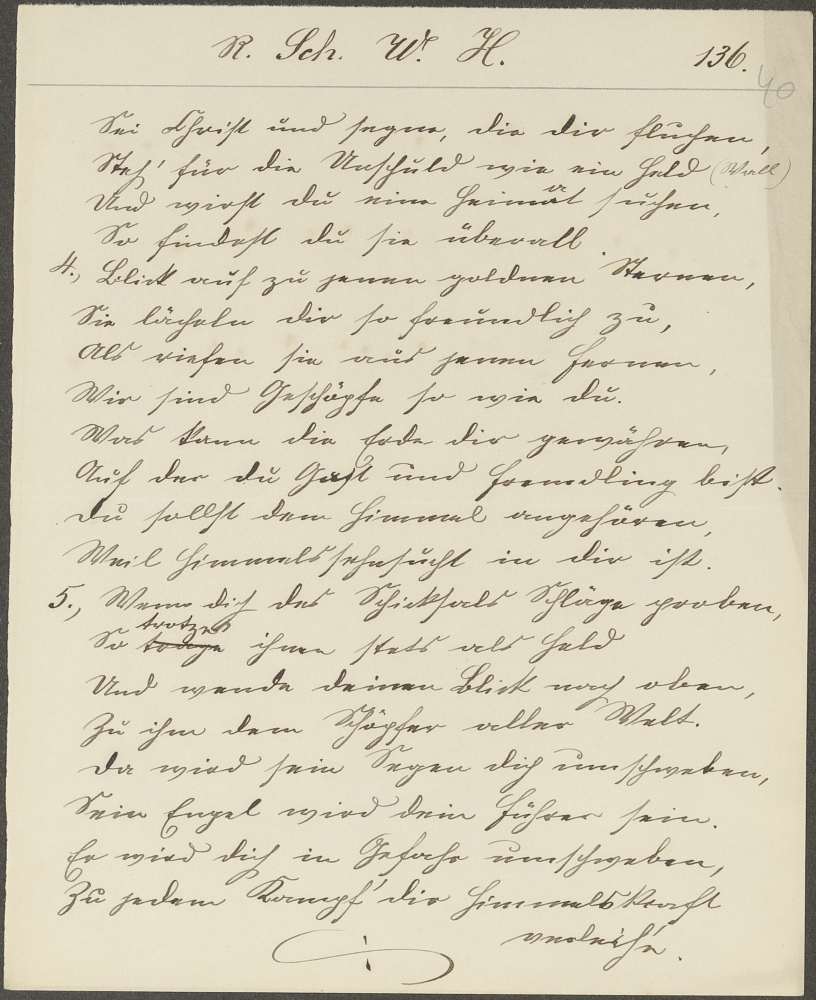 R. Sch. W. H. 136.
40
Sei Christ und segne, die dir fluchen,
Steh' für die Unschuld wie ein Held (Wall)
Und wirst du eine Heimat suchen,
So findest du sie überall.
4., Blick auf zu jenen goldnen Sternen,
Sie lächeln dir so freundlich zu,
Als riefen sie aus jenen Fernen,
Wir sind Geschöpfe so wie du.
Was kann die Erde dir gewähren,
Auf der du Gast und Fremdling bist.
Du sollst dem Himmel angehören,
Weil Himmelssehnsucht in dir ist.
5., Wenn dich des Schicksals Schläge proben,
trotze
So ihnen stets als Held
Und wende deinen Blick nach oben,
Zu ihm dem Schöpfer aller Welt.
Da wird sein Segen dich umschweben,
Sein Engel wird dein Führer sein.
Er wird dich in Gefahr umschweben,
Zu jedem Kampf' dir Himmelskraft
verleih'n.